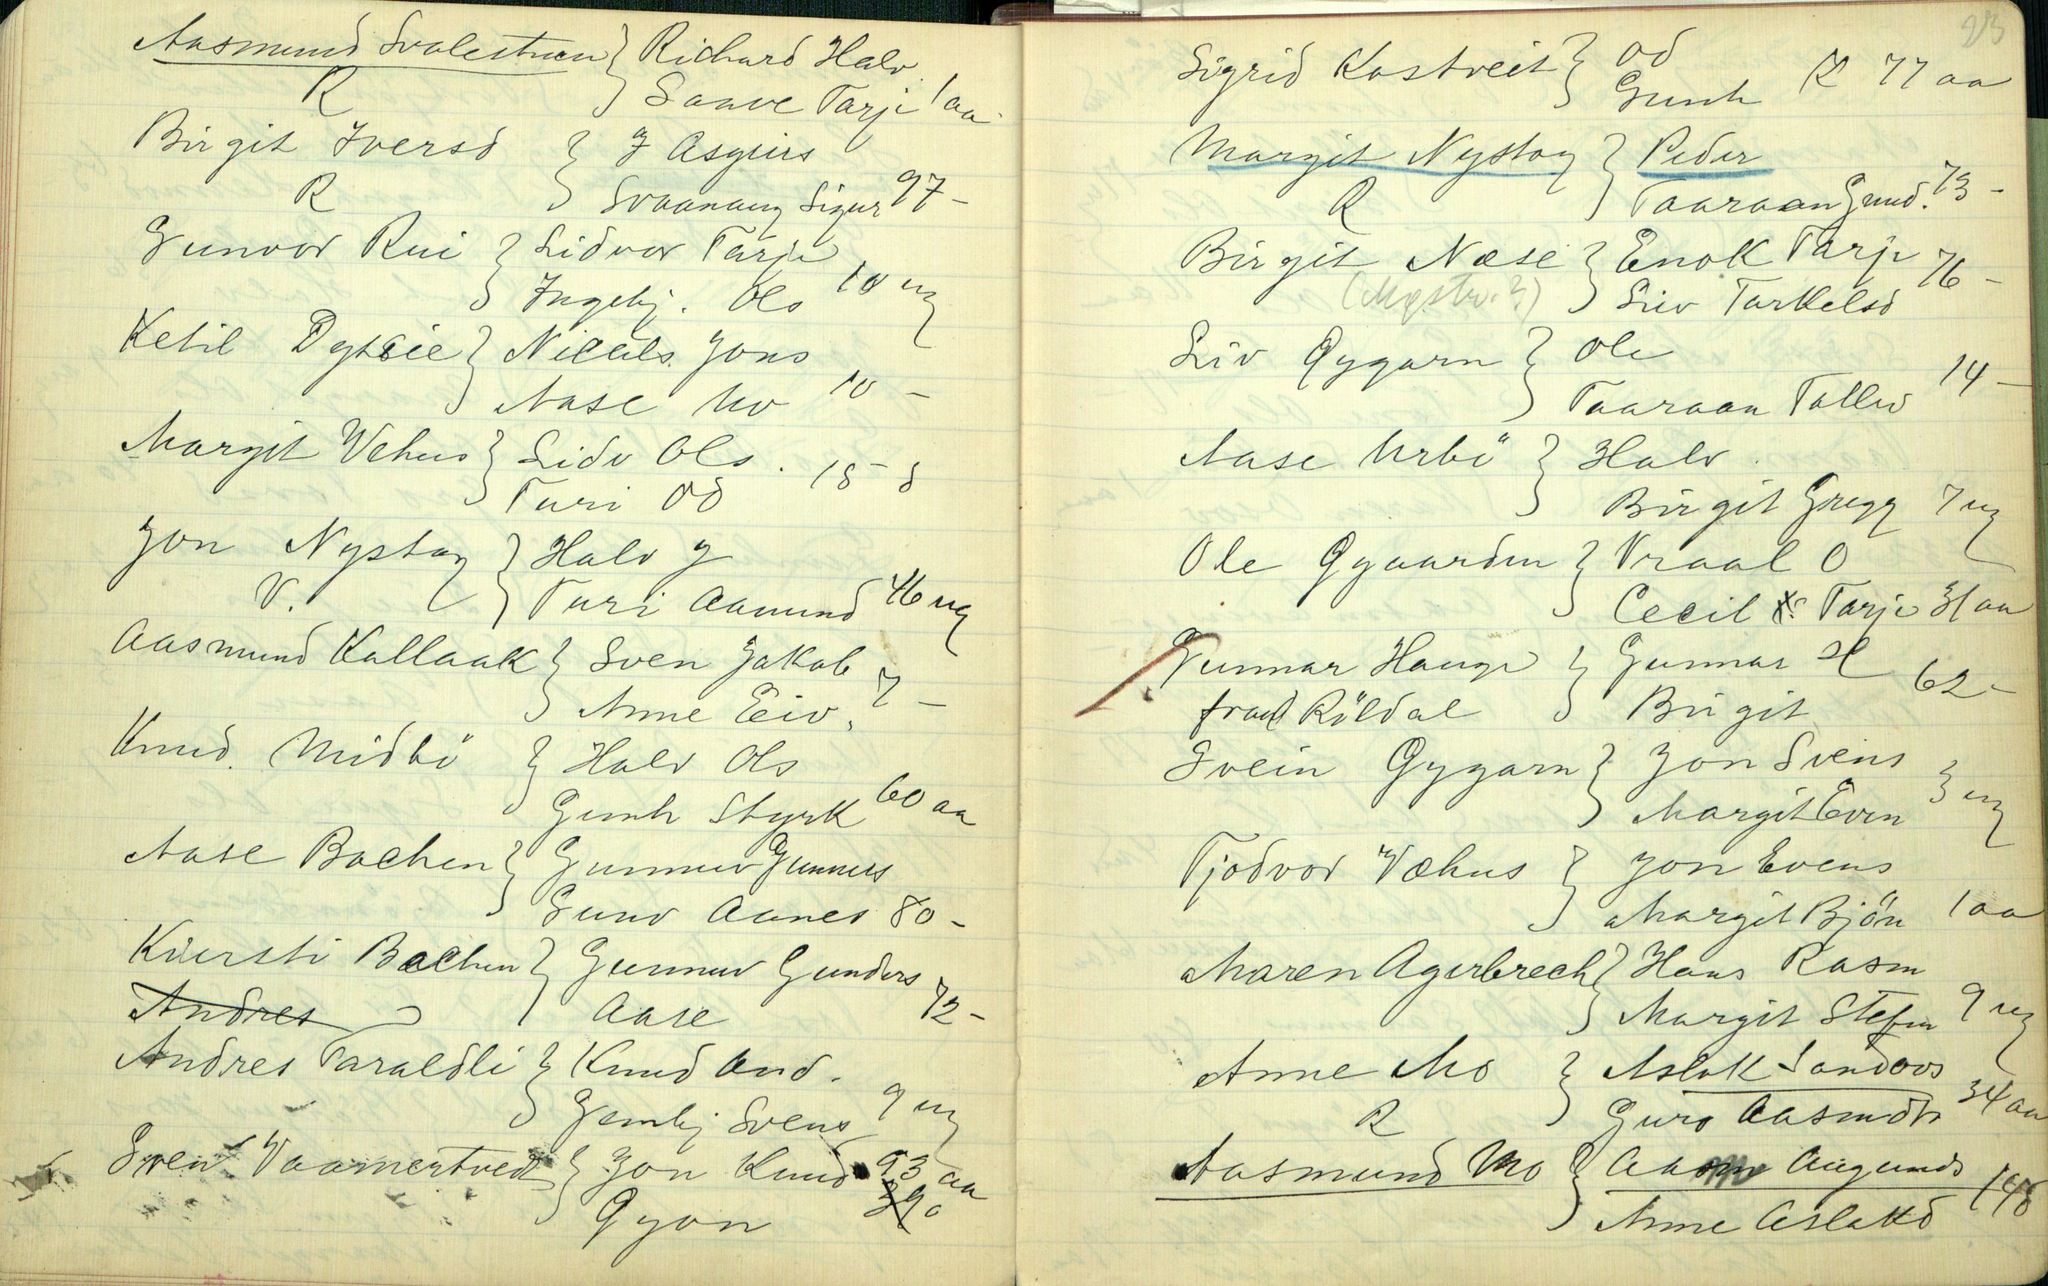 Aasmund Svalestuen } Richard Halv.
R Saave Tarje 1 aa.
Birgit Iversd } I Asgeirs
R Svaanaug Sigur 97 –
Gunvor Rui } Sidvor Tarje
Ingebj. Ols 10 ug
Ketil Dytsie } Nicculs Jons
Aase Mo 10 –
Margit Vehus } Lidv Ols.
Turi Od 15 – d
Jon Nystog } Halv J
V. Turi Aamund 46 ug
Aasmund Kallaak } Sven Jakob
Anne Eiv. 7 –
Knud. Midbö } Halv Ols
Gunh Styrk 60 aa
Aase Bachen } Gunnuv Gunners
Gunv Aanes 80 –
Kiersti Bachen } Gunnuv Gunders
Andres Aase 72 –
Andres Taraldli } Knud And.
Gembj Svens 9 ug
Sven Vaamertvedt } Jon Knud 93 aa
Gyon 39
23
Sigrid Kostveit } Od
Gunh K 77 aa
Margit Nystog } Peder
R Taaraan Gund. 73 –
Birgit Næse } Enok Tarje 76 –
(Mystr.?) Liv Tarkelsd
Liv Gygarn } Ole
Taaraan Tallev 14 –
Aase Urbö } Halv.
Birgit Gregg 7 ug
Ole Gyaarden } Vraal O
Cecil Tarje 31 aa
Gunnar Hauge } Gunnar H
fraa Röldal Birgit 62 –
Svein Gygarn } Jon Svens
Margit Even 3 ug
Tjodvor Væhus } Jon Evens
Margit Bjön 1 aa
Maren Agerbrech } Hans Rasm
Margit Stefen 9 ug
Anne Mo } Aslak Sandovs
R Guro Aasmdtr 34 aa
Aasmund Mo } Aasm Augunds
Anne Aslakd 148